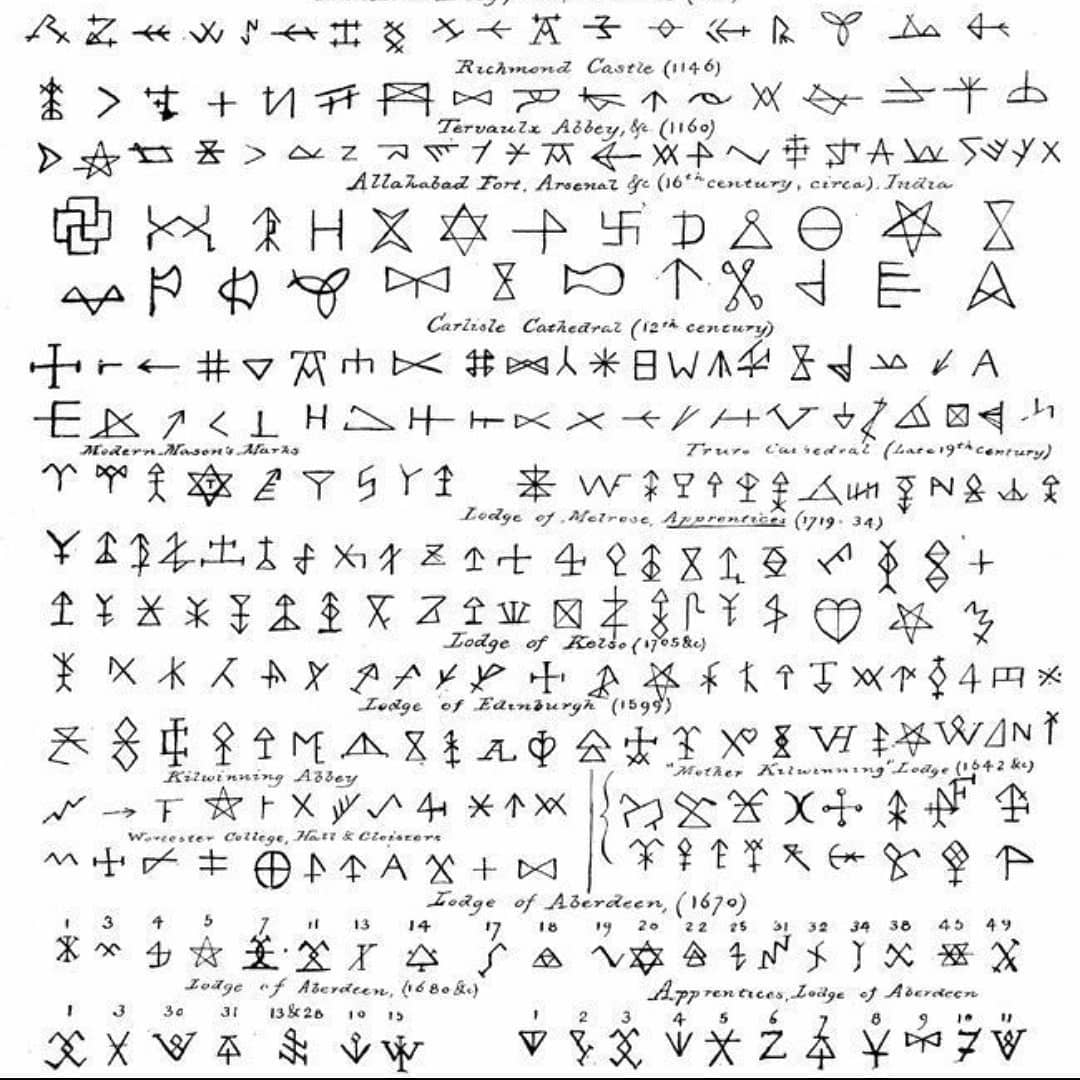 Richmond Castle (1146)
Tervaulx Abbey, &c. (1160)
Allahabad Fort, Arsenal &c (16th century, circa), India
Carlisle Cathedral (12th century)
Modern Mason's Marks
Truro Cathedral (Late 19th century)
Lodge of Melrose, Apprentices (1719-34)
Lodge of Kelso (1705 &c)
Lodge of Edinburgh (1599)
Kilwinning Abbey
"Mother Kilwinning" Lodge (1642 &c)
Worcester College, Hall & Cloisters
Lodge of Aberdeen, (1670)
1 3 4 5 7 11 13 14 17 18 19 20 22 25 31 32 34 38 45 49
Lodge of Aberdeen, (1680 &c)
Apprentices, Lodge of Aberdeen
1 3 30 31 13 & 28 10 15
1 2 3 4 5 6 7 8 9 10 11